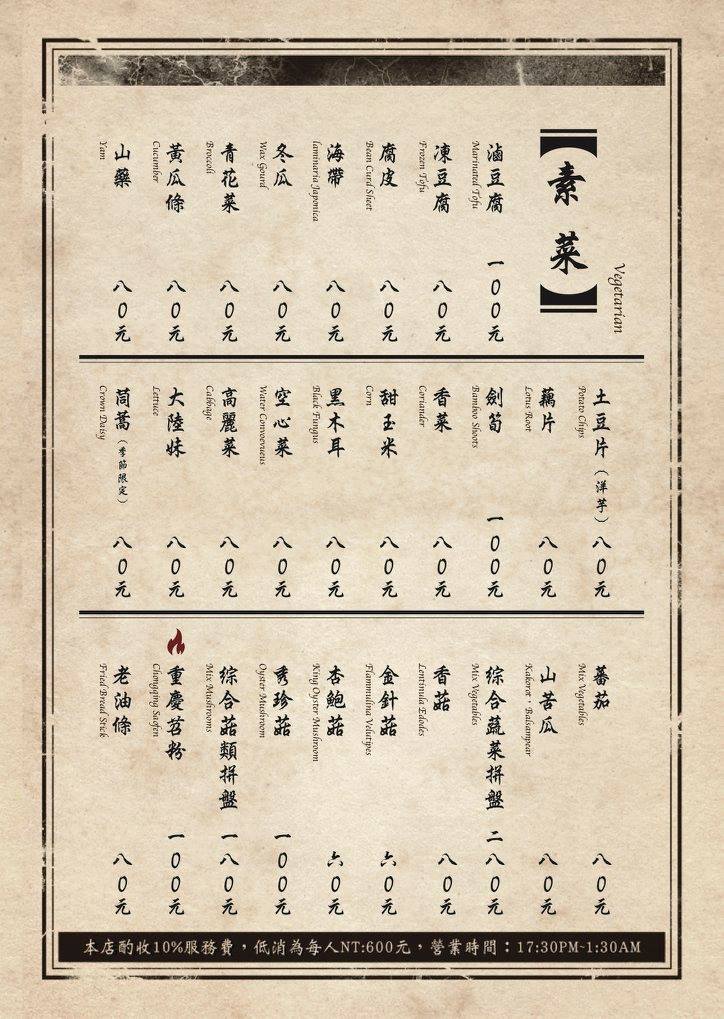 【素菜】
Vegetarian
滷豆腐 一00元
Marinated Tofu
凍豆腐 八0元
Frozen Tofu
腐皮 八0元
Bean Curd Sheet
海帶 八0元
laminaria Japonica
冬瓜 八0元
Wax Gourd
青花菜 八0元
Broccoli
黃瓜條 八0元
Cucumber
山藥 八0元
Yam
土豆片（洋芋） 八0元
Potato Chips
藕片 八0元
Lotus Root
劍筍 一00元
Bamboo Shoots
香菜 八0元
Coriander
甜玉米 八0元
Corn
黑木耳 八0元
Black Fungus
空心菜 八0元
Water Convovueus
高麗菜 八0元
Cabbage
大陸妹 八0元
Lettuce
茼蒿（季節限定） 八0元
Crown Daisy
蕃茄 八0元
Mix Vegetables
山苦瓜 八0元
Kakorot，Balsampear
綜合蔬菜拼盤 二八0元
Mix Vegetables
香菇 八0元
Lentinula Edodes
金針菇 六0元
Flammulina Velutipes
杏鮑菇 六0元
King Oyster Mushroom
秀珍菇 一00元
Oyster Mushroom
綜合菇類拼盤 一八0元
Mix Mushrooms
重慶苕粉 一00元
Chongqing Saofen
老油條 八0元
Fried Bread Stick
本店酌收10%服務費，低消為每人NT:600元，營業時間：17:30PM~1:30AM